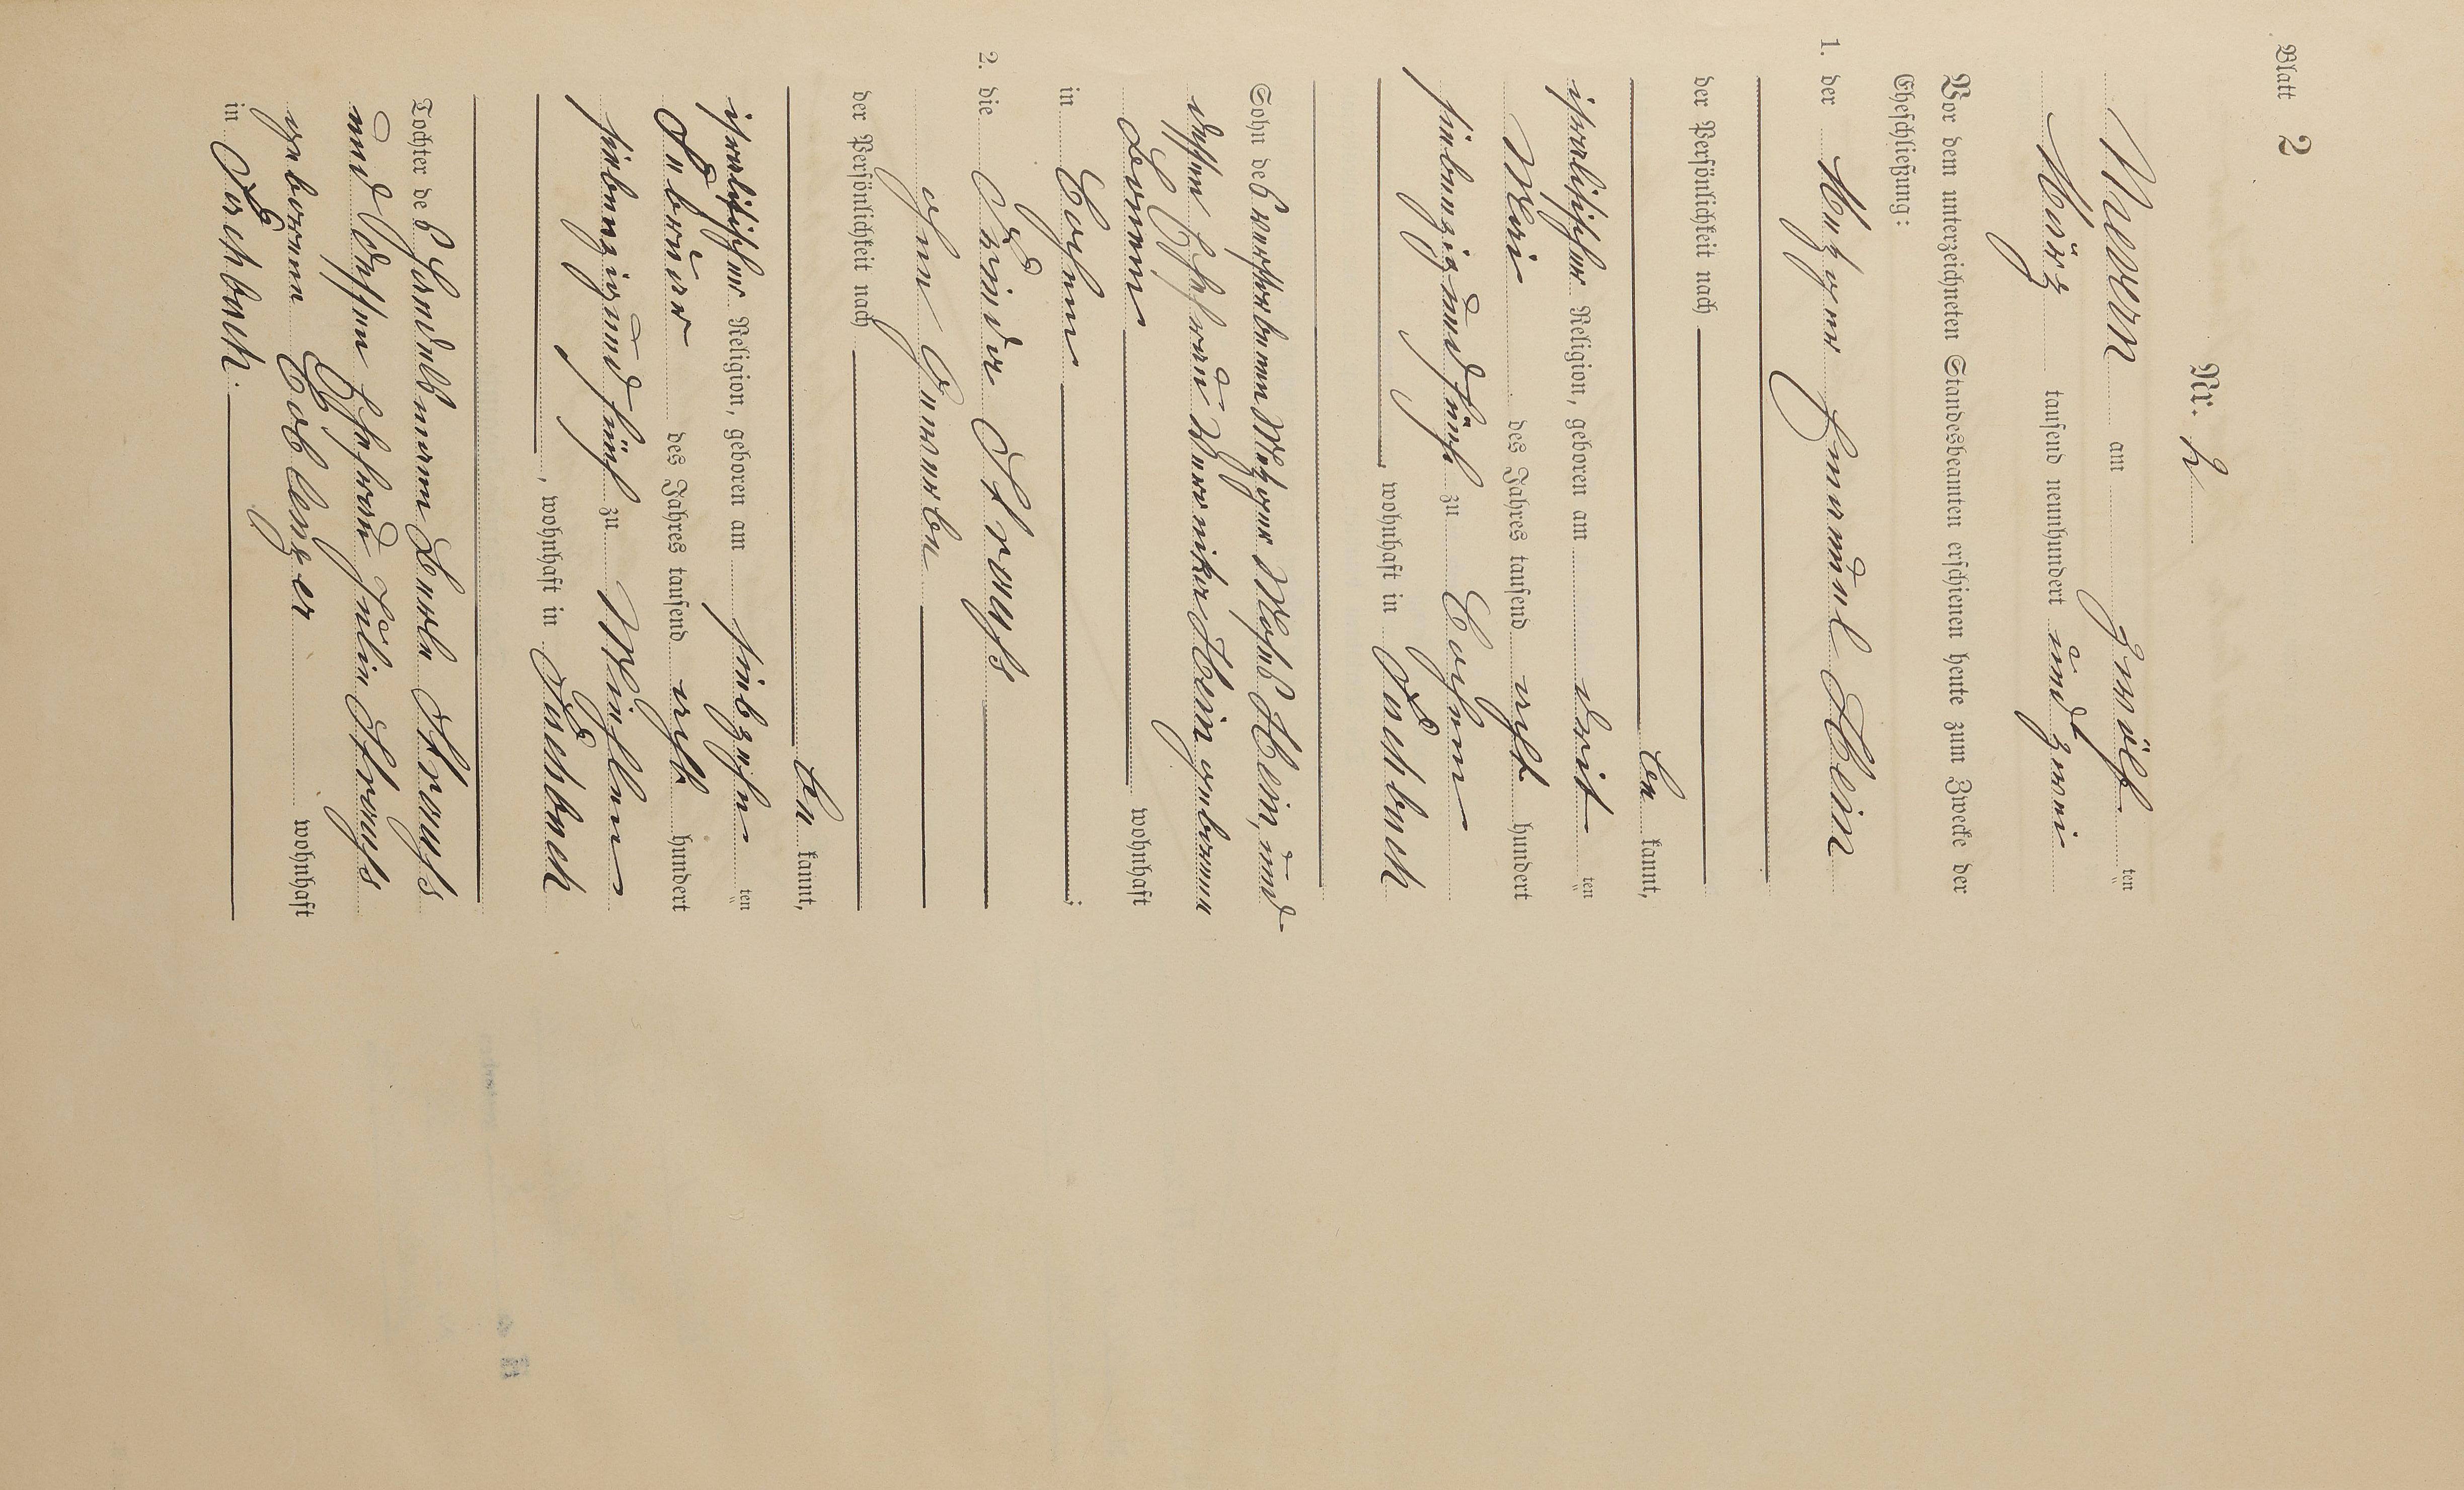 Blatt 2
Nr. 2
Nievern am zwölf ten
März tausend neunhundert und zwei
Vor dem unterzeichneten Standesbeamten erschienen heute zum Zwecke der
Eheschließung:
1. der Metzger Emanuel Hein
der Persönlichkeit nach
be kannt,
israelitischer Religion, geboren am dritt ten
Mai des Jahres tausend acht hundert
siebenzig und fünf zu Cochem
, wohnhaft in Fachbach
Sohn des verstorbenen Metzger Moses Hein, und
dessen Ehefrau Veronika Hein geborenen
wohnhaft
in Cochem ;
2. die Frieda Strauss
ohne Gewerbe
der Persönlichkeit nach
be kannt,
israelitischer Religion, geboren am siebzehn ten
Februar des Jahres tausend acht hundert
siebenzig und fünf zu Miehlen
, wohnhaft in Fachbach
Tochter des Handelsmann Strauss
und dessen Ehefrau Julie Strauss
geborenen Coblenzer wohnhaft
in Fachbach.